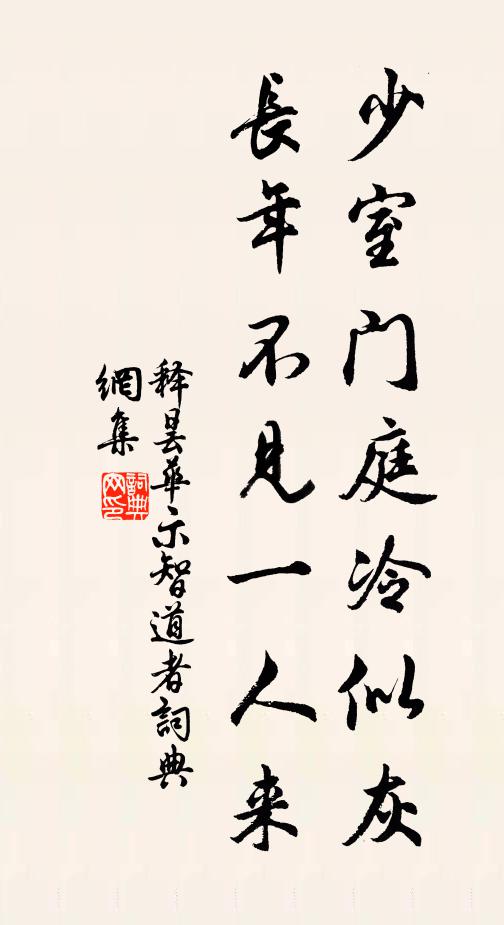 少室門庭冷似灰
長年不見一人来
释曇華示智道者詞典
網集
詞典
网印